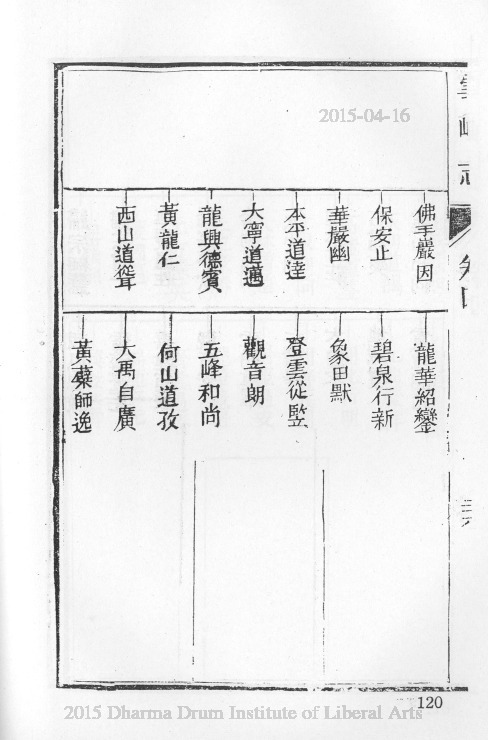 2015-04-16
雲峰志
卷四
佛手巖因
保安止
華嚴幽
本平道逹
大寧道邁
龍興德賓
黃龍仁
西山道聳
龍華紹鑾
碧泉行新
象田默
登雲從監
觀音朗
五峰和尚
何山道孜
大禹自廣
黃蘗師逸
120
2015 Dharma Drum Institute of Liberal Arts